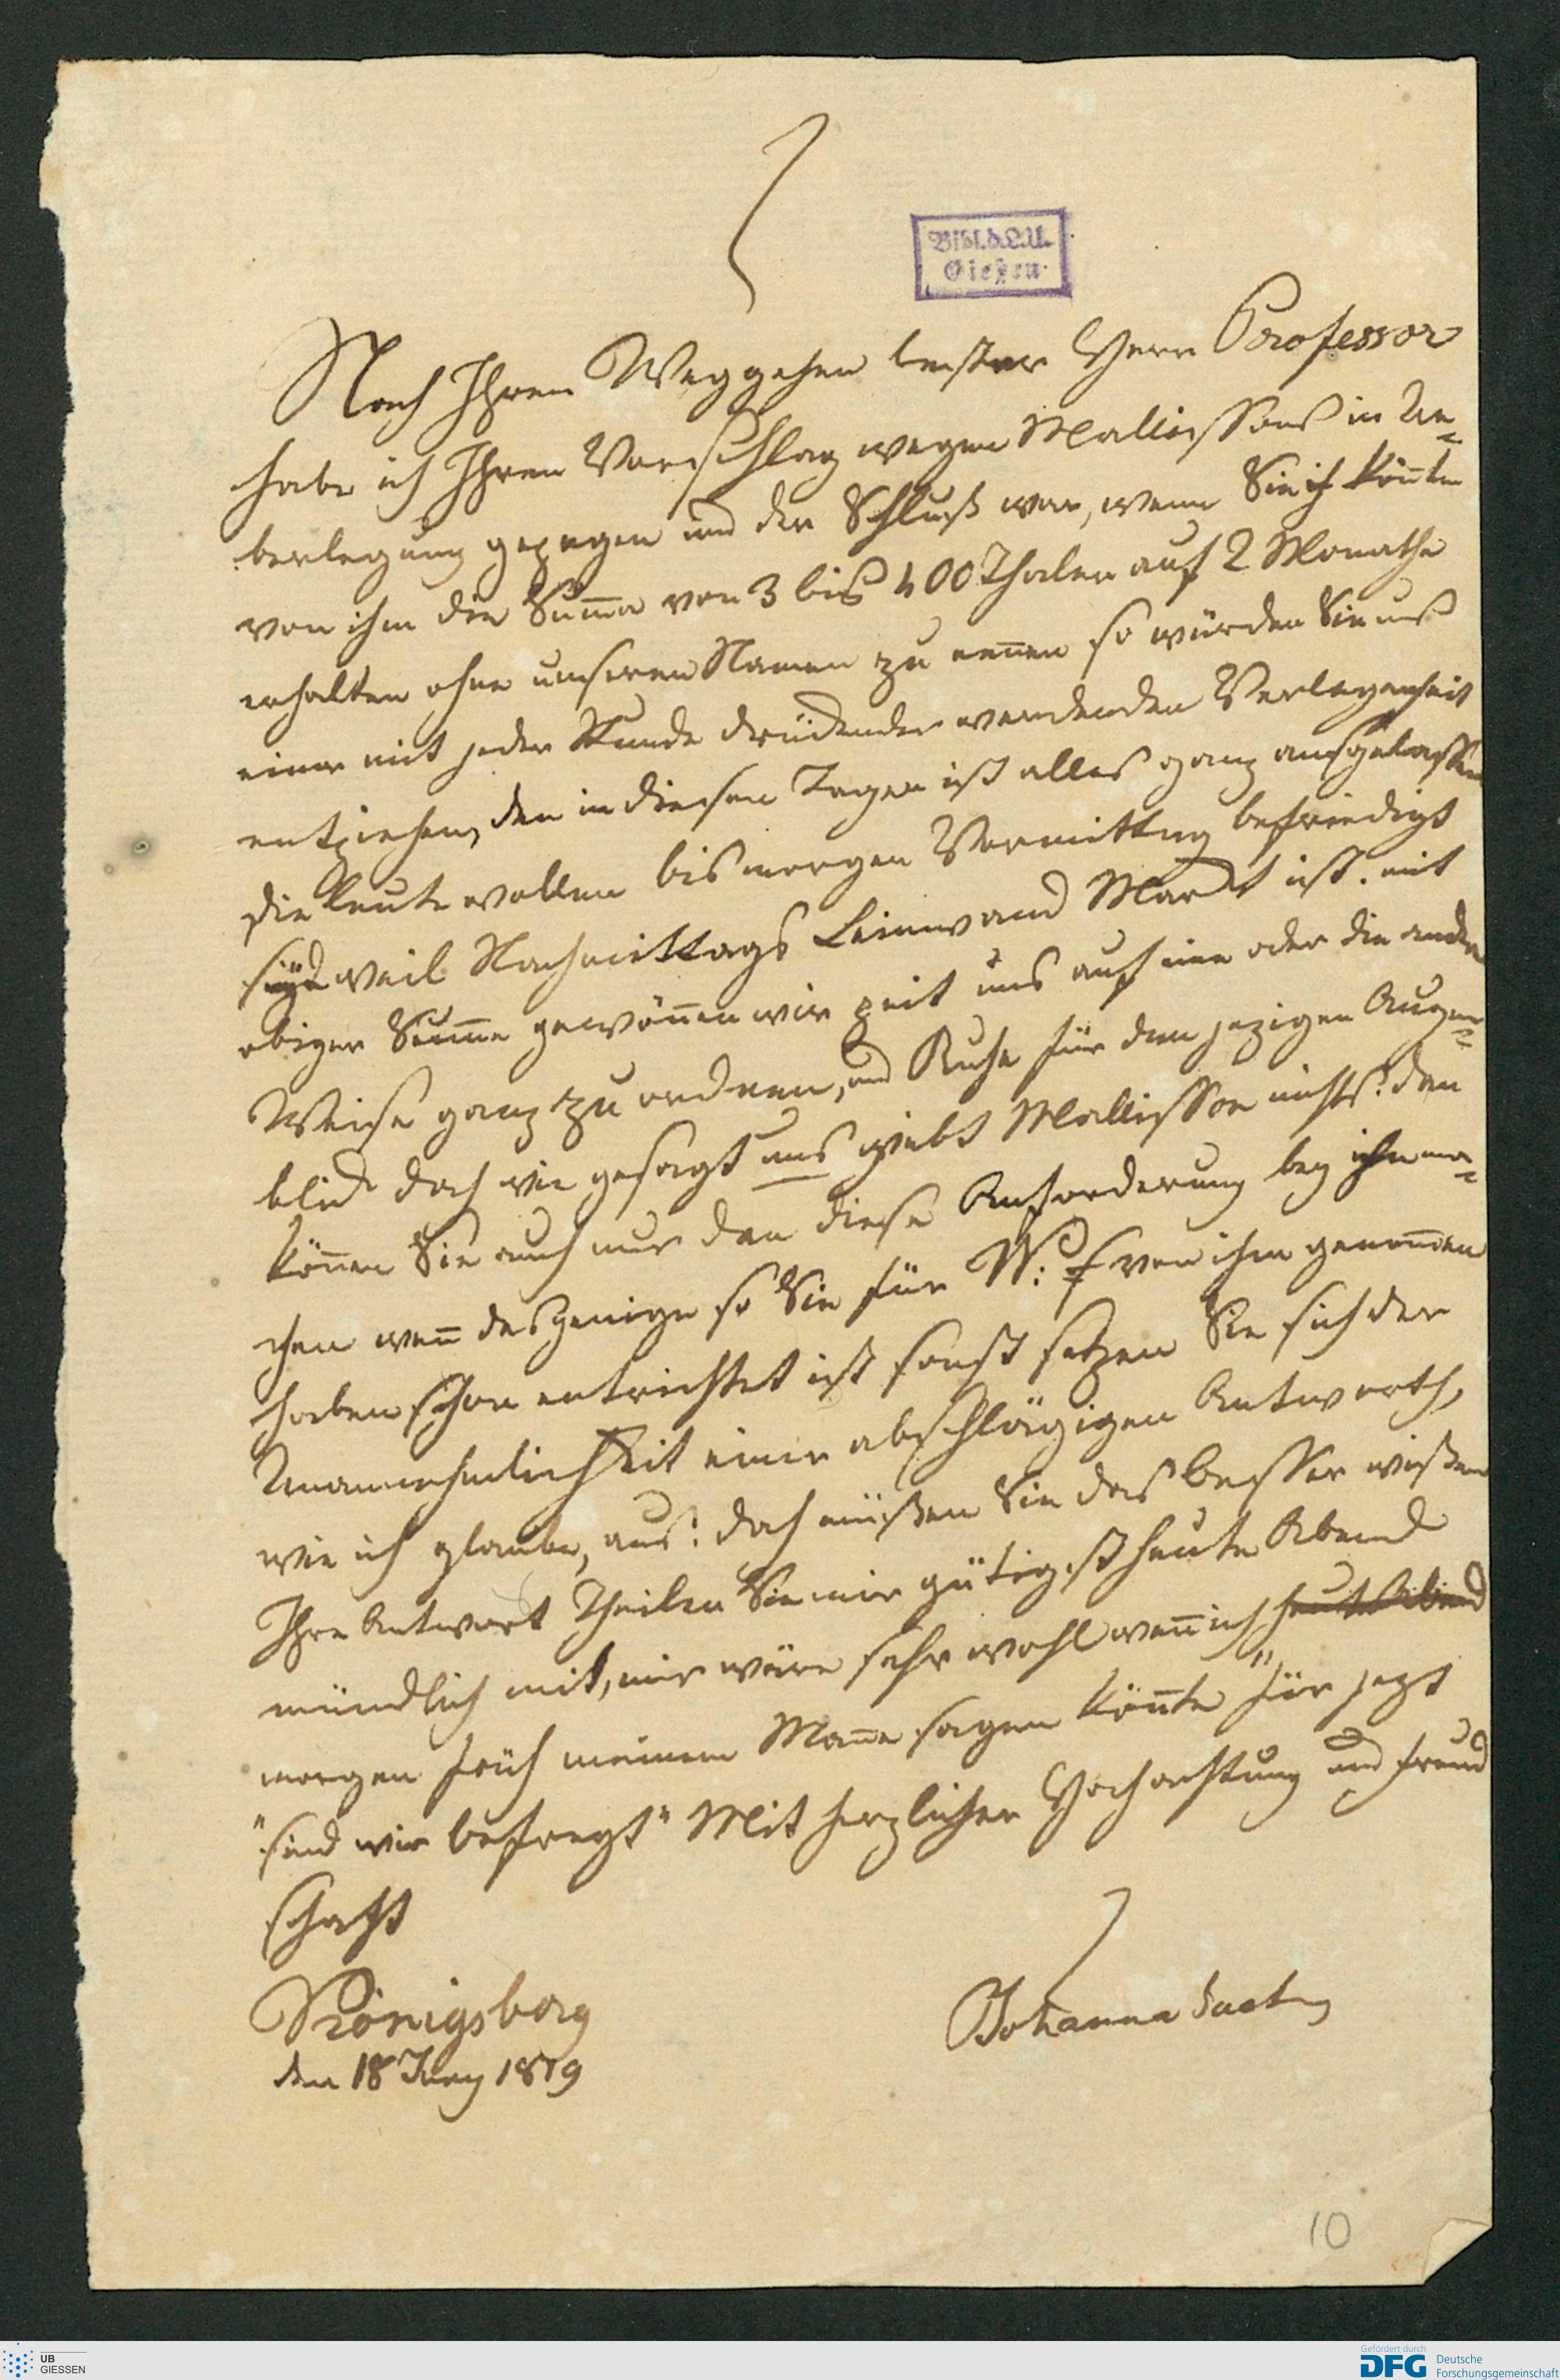 Bibl. d. L. U.
Gießen
Nach Ihrem Weggehen bester Herr Professor
habe ich Ihren Vorschlag wegen Mallissons in Ue=
berlegung gezogen und der Schluß war, wenn Sie könten
von ihm die Suma von 3 bis 400 Thaler auf 2 Monathe
erhalten ohne unseren Namen zu nenen so würden Sie uns
einer mit jeder Stunde drückender werdenden Verlegenheit
entziehen, den in diesen Tagen ist alles ganz ausgelassen
die Leute wollen bis morgen Vormittag befriedigt
weil Nachmittags Leinwand Markt ist. mit
obiger Summe gewönnen wir zeit uns auf eine oder die andre
Weise ganz zu ordnen, und Ruhe für den jezigen Augen=
blick doch wie gesagt uns giebt Mallisson nichts: den
könen Sie auch nur dan diese Anforderung bey ihm ma=
chen wen dasjenige so Sie für W: von ihm genomen
haben schon entrichtet ist sonst setzen Sie sich der
Unannehmlichkeit einer abschlägigen Antworth,
wie ich glaube, aus: doch müßen Sie das besser wißen
Ihre Antwort Theilen Sie mir gütigst heute Abend
mündlich mit, mir wäre sehr wohl wen ich heute Abend
morgen früh meinem Mane sagen könte "für jezt
"sind wir befreyt" Mit herzlicher Hochachtung und Freund
schaft
Königsberg
den 18 Juny 1819
Johanna
10
UB
GIESSEN
Gefördert durch
DFG Deutsche
Forschungsgemeinschaft